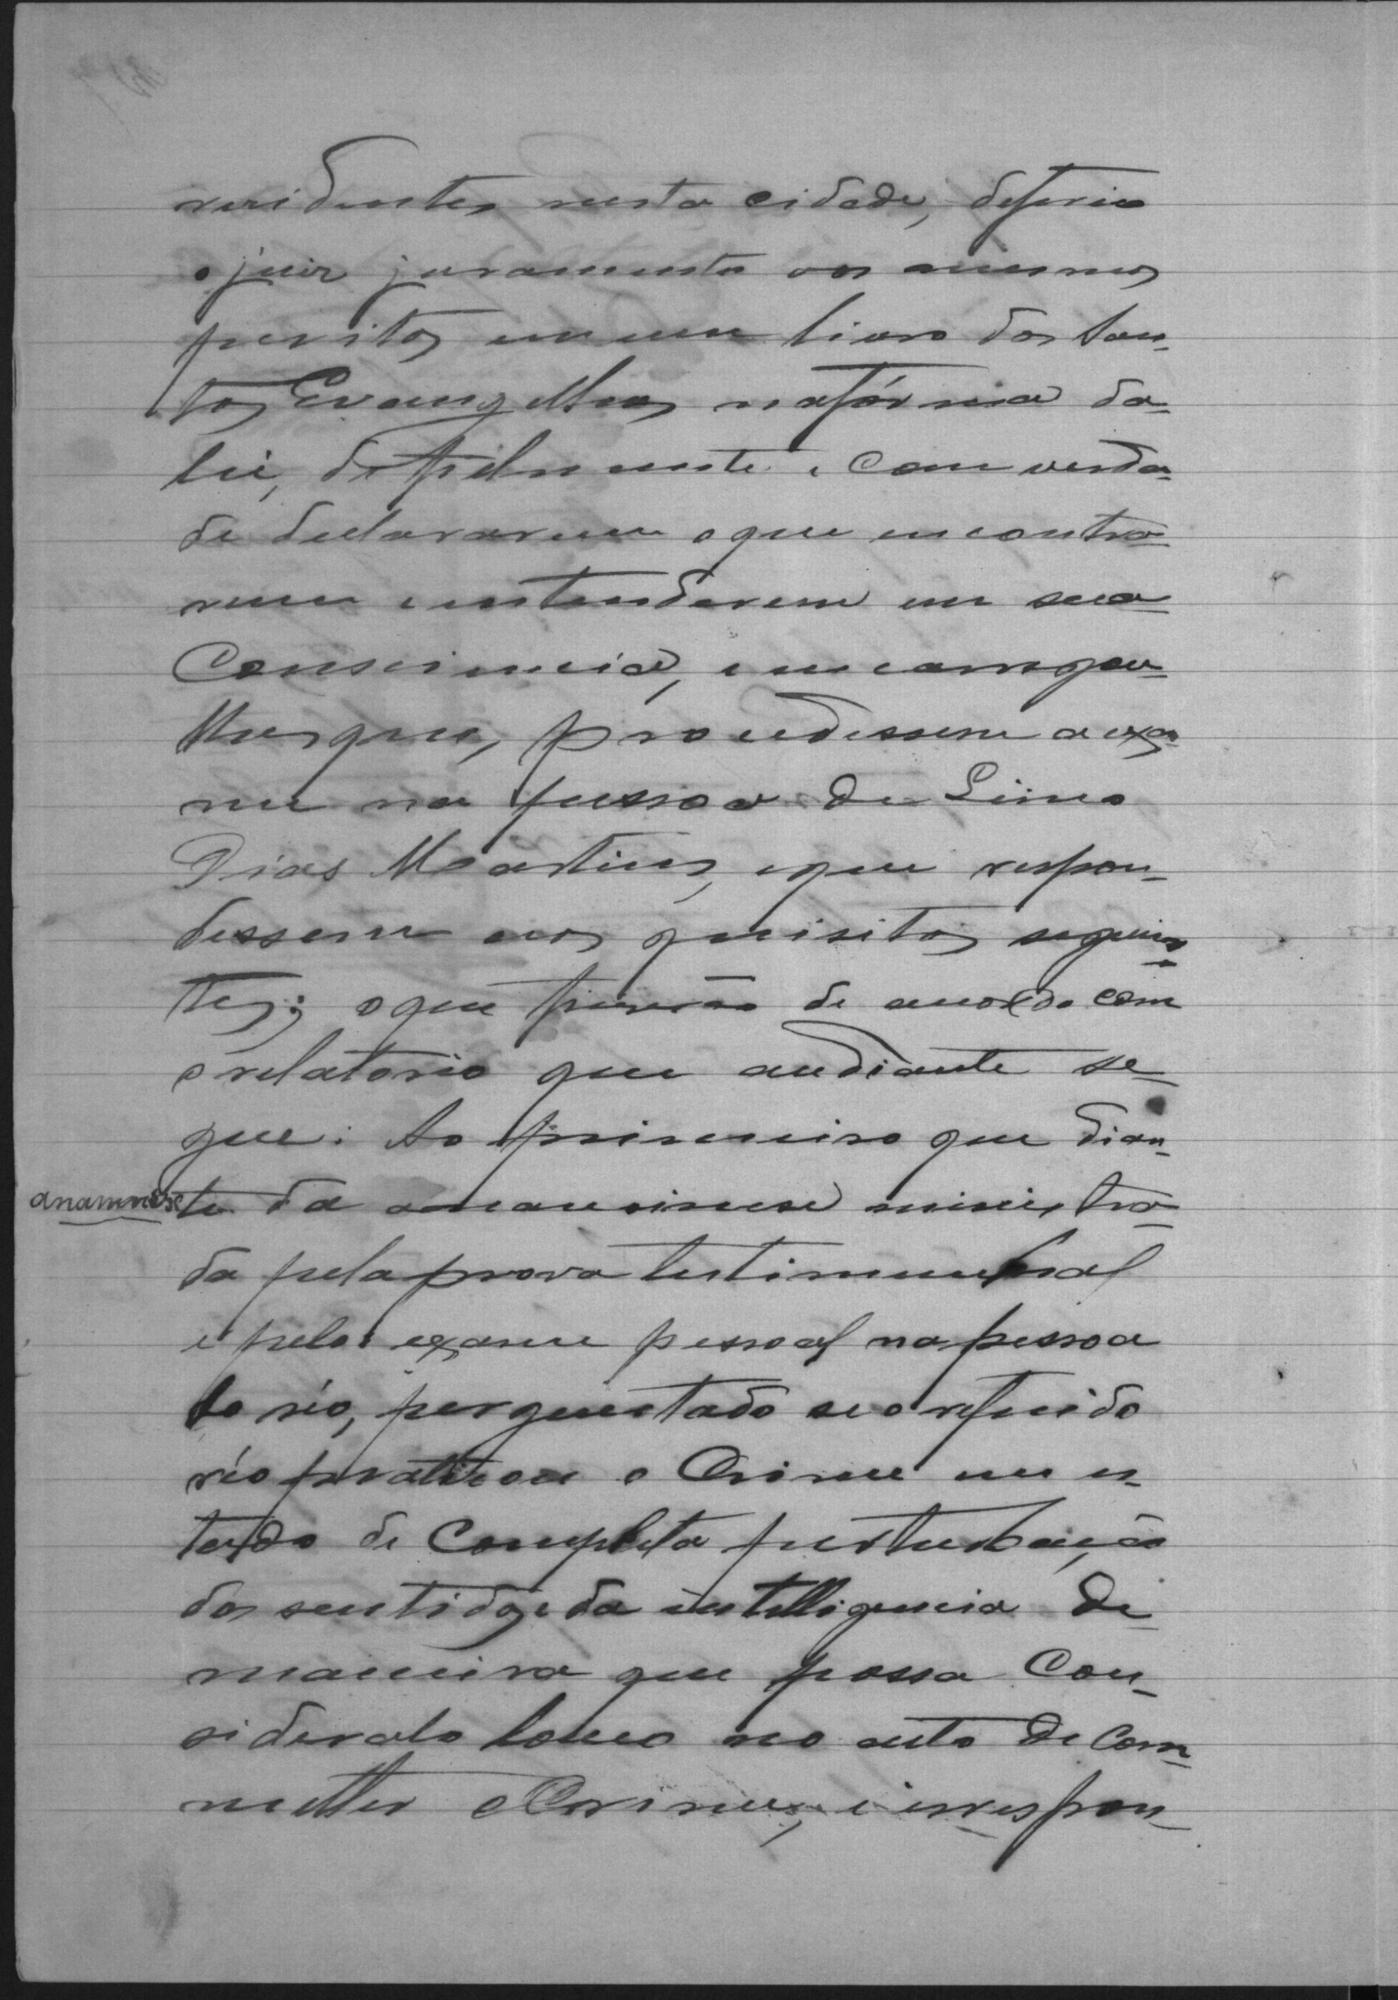 residentes nesta cidade, deferio
o juiz juramento aos mesmos
peritos em um livro dos San-
tos Evangelhos na fórma da
lei, de fielmente e com verda-
de declararem o que encontra-
rem e entenderem em sua
Consciencia, e encarregou-
lhes que, procedessem a exa-
me na pessoa de Lino
Dias Martins, e que respon-
dessem aos quisitos seguin-
tes; o que fizerão de accordo com
o relatorio que aediante se-
gue: Ao primeiro que dian-
anamnese te da ministra-
da pela prova testimunhal
e pelo exame pessoal na pessoa
do réo, perguntado se o referido
réo praticou o Crime em es-
tado de Completa perturbação
dos sentidos e da intelligencia de
maneira que possa Con-
sideralo louco no acto de Com-
metter o Crime, e irrespon-